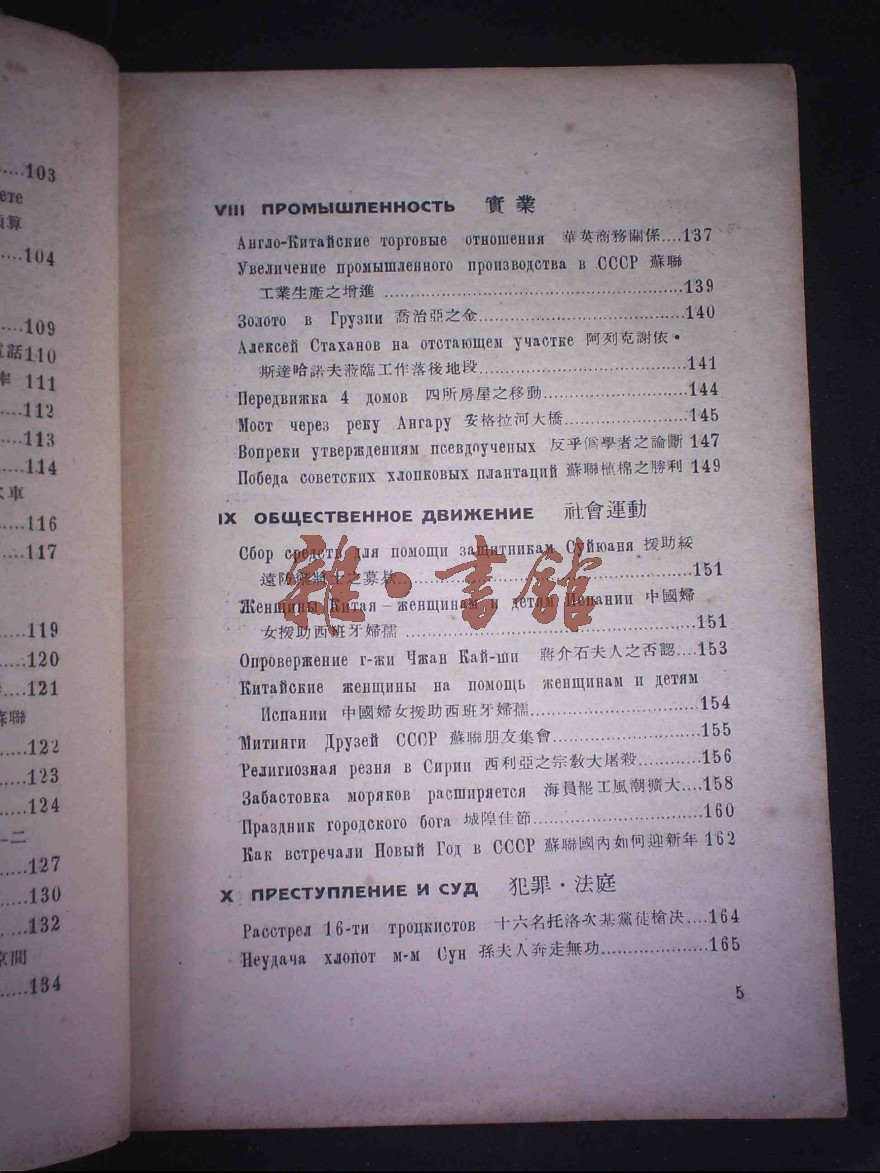 .....103
ете
預算
....104
....109
電話110
率 111
....112
....113
....114
火車
....116
....117
....119
....120
....121
蘇聯
....122
....123
....124
—二
....127
....130
....132
京間
....134
VIII ПРОМЫШЛЕННОСТЬ 實業
Англо-Китайские торговые отношения 華英商務關係....137
Увеличение промышленного производства в СССР 蘇聯
工業生產之增進 ....................139
Золото в Грузии 喬治亞之金....................140
Алексей Стаханов на отстающем участке 阿列克謝依·
斯達哈諾夫蒞臨工作落後地段....................141
Передвижка 4 домов 四所房屋之移動....................144
Мост через реку Ангару 安格拉河大橋....................145
Вопреки утверждениям псевдоученых 反乎僞學者之論斷 147
Победа советских хлопковых плантаций 蘇聯植棉之勝利 149
IX ОБЩЕСТВЕННОЕ ДВИЖЕНИЕ 社會運動
Сбор средств для помощи защитникам Суйюаня 援助綏
遠防禦將士之募款....................151
Женщины Китая – женщинам и детям Испании 中國婦
女援助西班牙婦孺 ....................151
Опровержение г-жи Чжан Кай-ши 蔣介石夫人之否認....153
Китайские женщины на помощь женщинам и детям
Испании 中國婦女援助西班牙婦孺....................154
Митинги Друзей СССР 蘇聯朋友集會....................155
Религиозная резня в Сирии 西利亞之宗敎大屠殺............156
Забастовка моряков расширяется 海員罷工風潮擴大....158
Праздник городского бога 城隍佳節....................160
Как встречали Новый Год в СССР 蘇聯國內如何迎新年 162
X ПРЕСТУПЛЕНИЕ И СУД 犯罪·法庭
Расстрел 16-ти троцкистов 十六名托洛次基黨徒槍决....164
Неудача хлопот м-м Сун 孫夫人奔走無功....................165
5
雜·書館